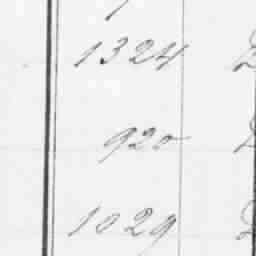 1324
920
1029